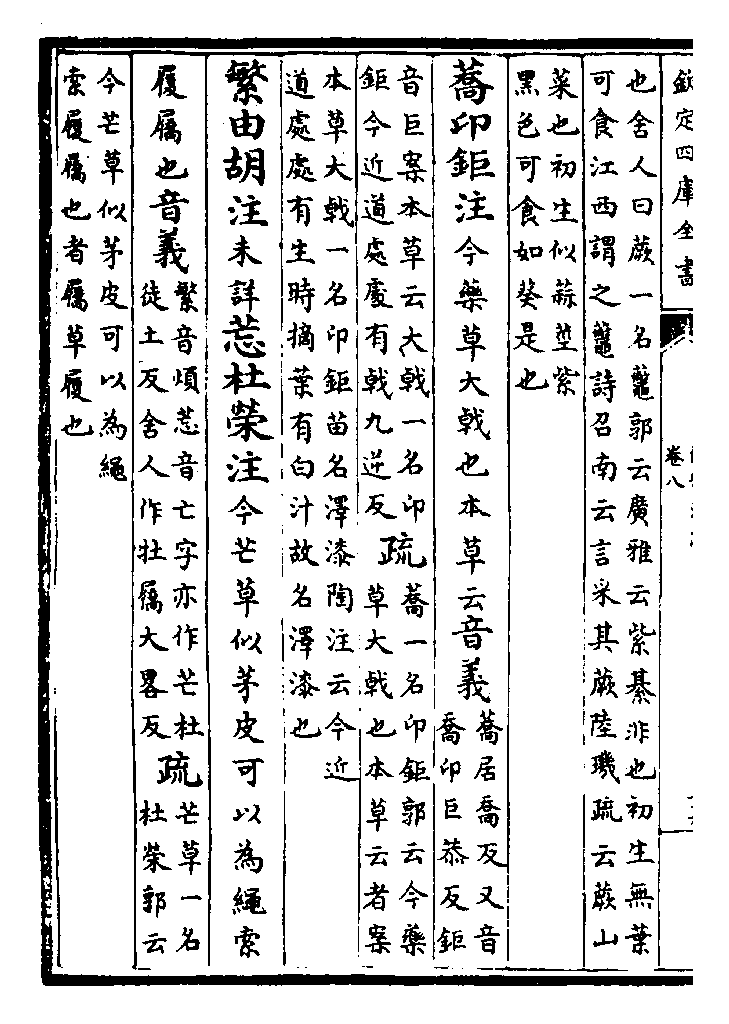 欽定四庫全書
卷八
也舍人曰蕨一名虌郭云廣雅云紫綦非也初生無葉
可食江西謂之虌詩召南云言采其蕨陸璣疏云蕨山
菜也初生似蒜莖紫
黑色可食如葵是也
蕎卭鉅注今藥草大戟也本草云音義
蕎居喬反又音
喬卭巨恭反鉅
音巨案本草云大戟一名卭
鉅今近道處處有戟九逆反
疏
蕎一名卭鉅郭云今藥
草大戟也本草云者案
本草大戟一名卭鉅苗名澤漆陶注云今近
道處處有生時摘葉有白汁故名澤漆也
繁由胡注未詳莣杜榮注今芒草似茅皮可以為繩索
履屩也音義
繁音煩莣音亡字亦作芒杜
徒土反舍人作牡屩大畧反
疏
芒草一名
杜榮郭云
今芒草似茅皮可以為繩
索履屩也者屩草履也